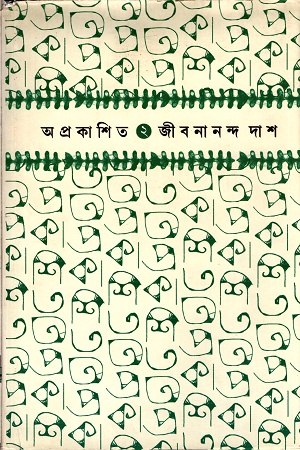 অপ্রকাশিত ২ জীবনানন্দ দাশ